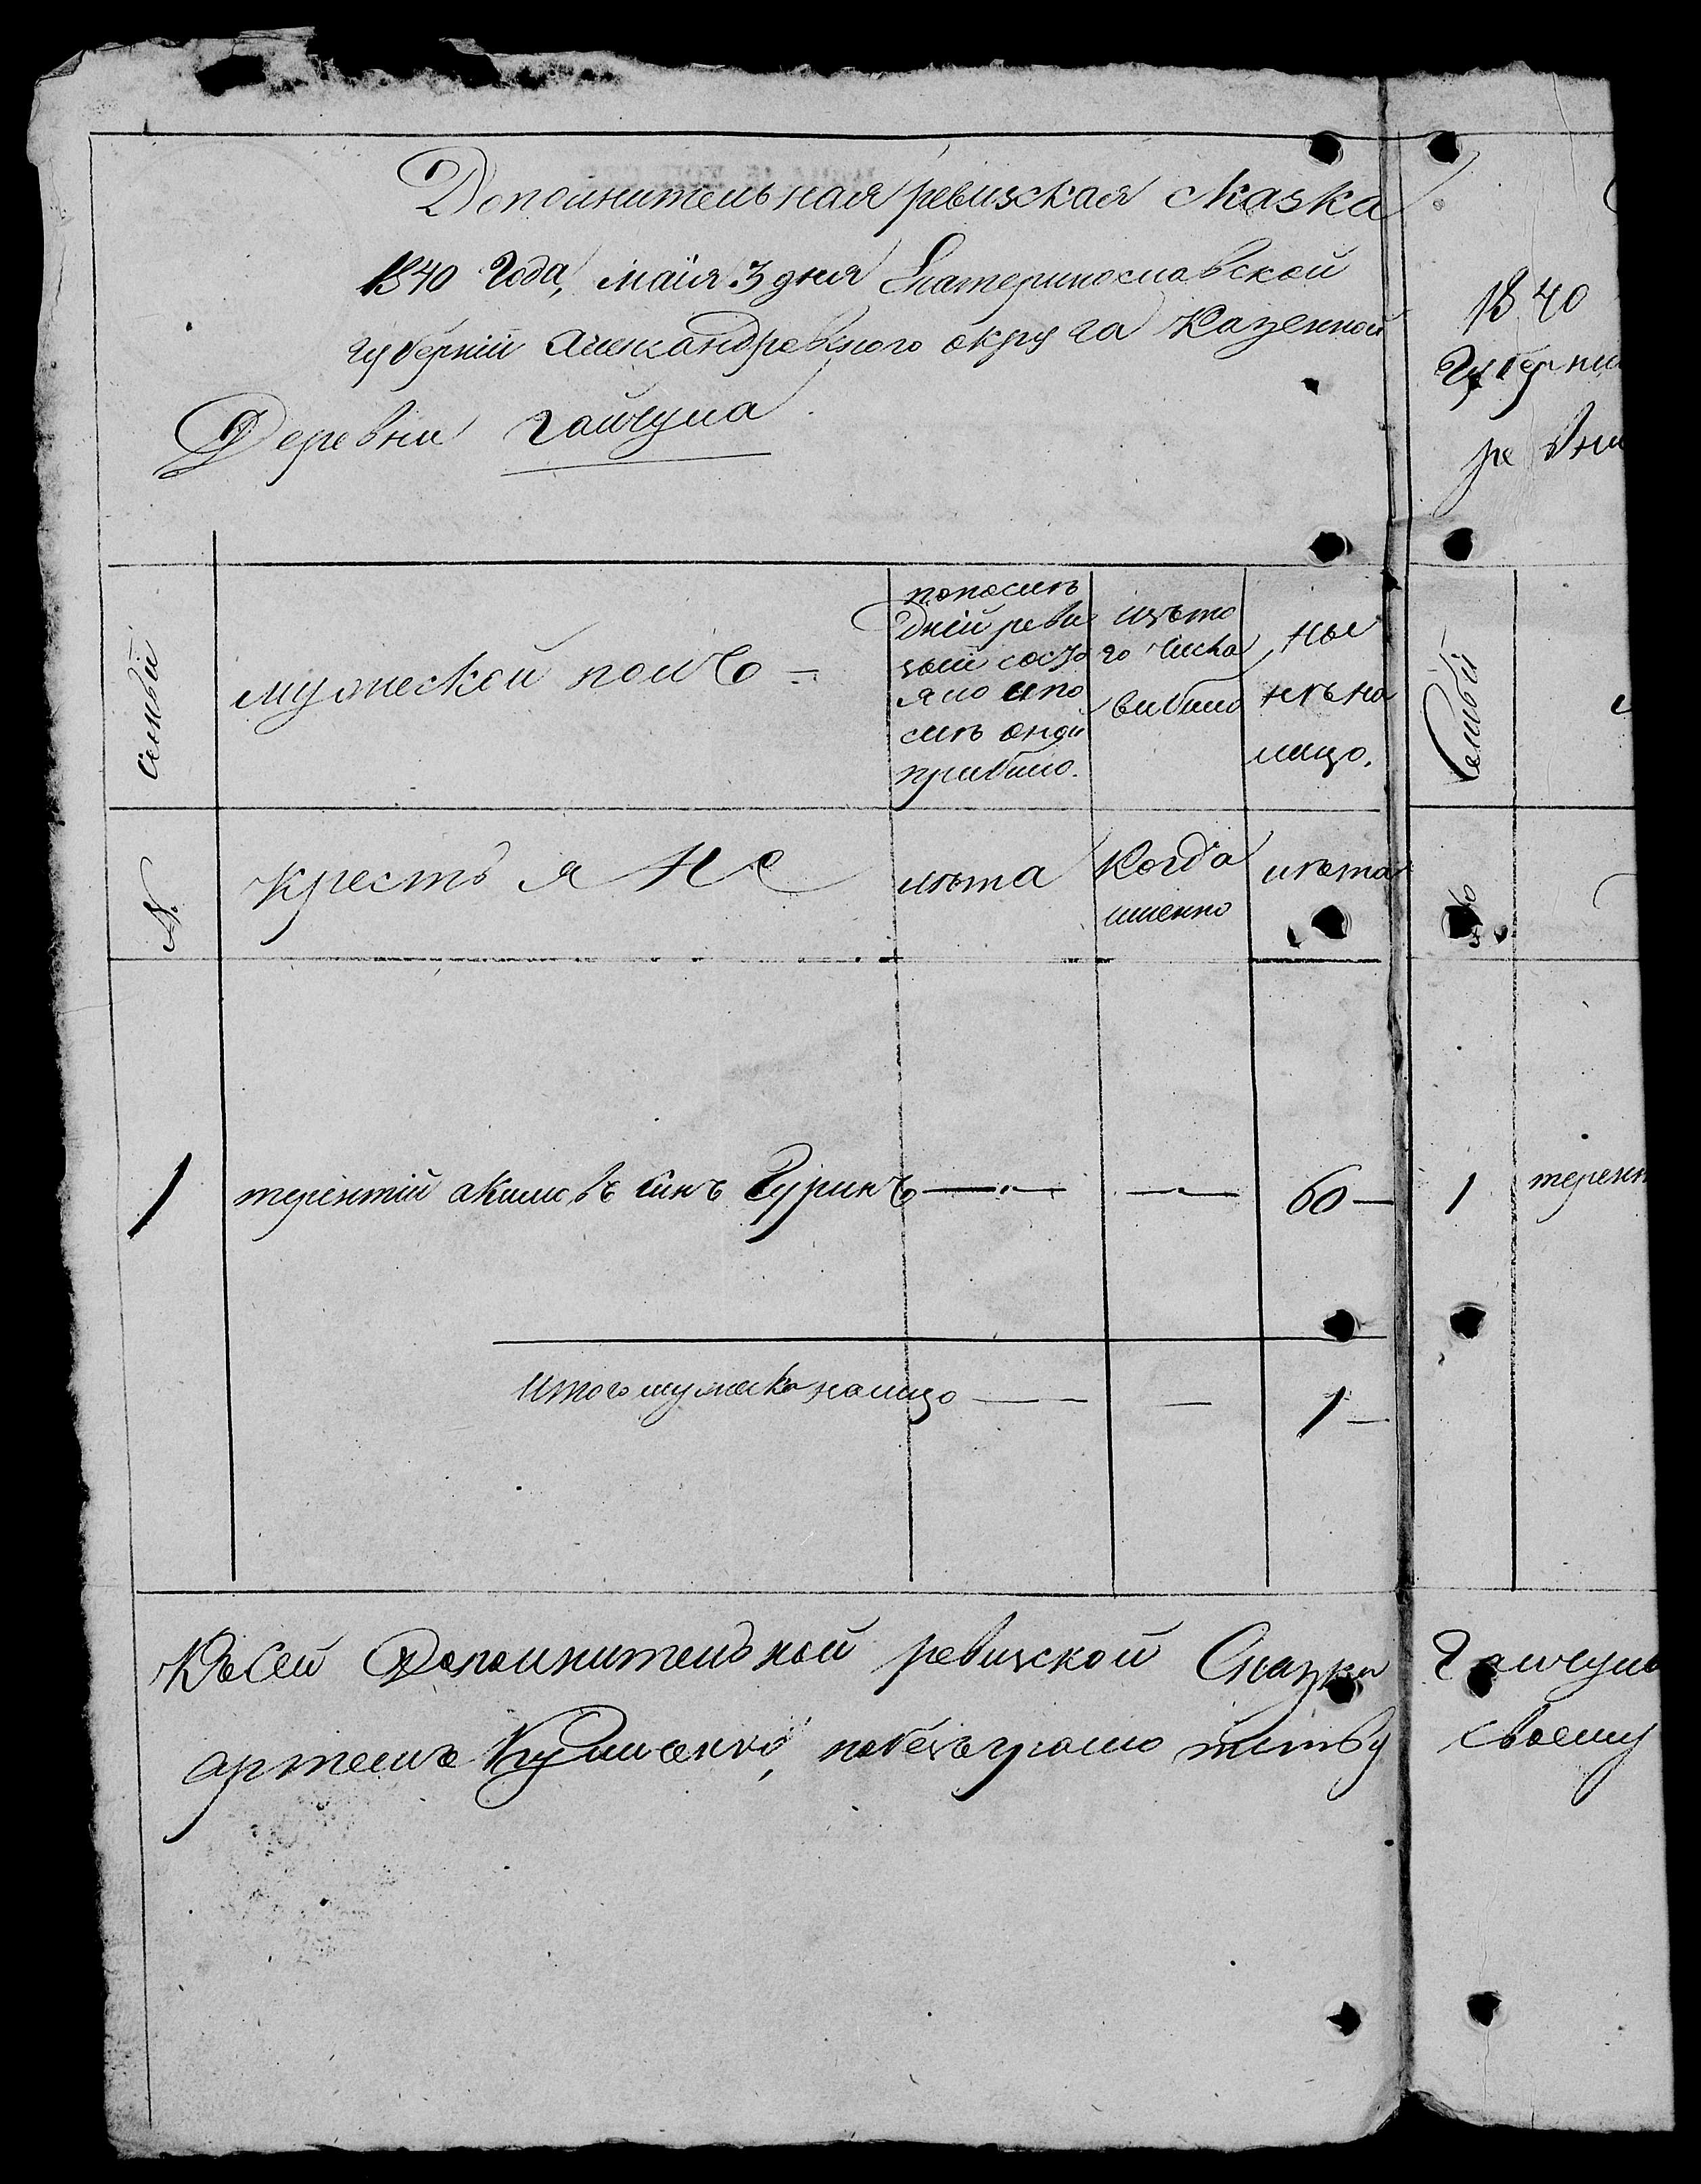 Дополнительная ревизская сказка
1840 Года, маїя 3 дня Екатеринославской
губерніи александровского округа Казенной
Деревни гайчула
семьи
мужеской полъ
попослѣ
дней реви
зои состо
яло и по
слѣ оной
прибило.
изъто
го числа
вибило
ны
нѣ на
лицо.
№.
крестьяне
лѣта
Когда
именно
лѣта
1
терентій акимовъ синъ Гуринъ — — 60 —
Итого мужеска налицо — — 1 —
Къ сей Дополнительной ревизской Сказки
артемъ, набезъграмо
1840
Губерни
ре вни
Семьи
1
терен
Гайчула
своему